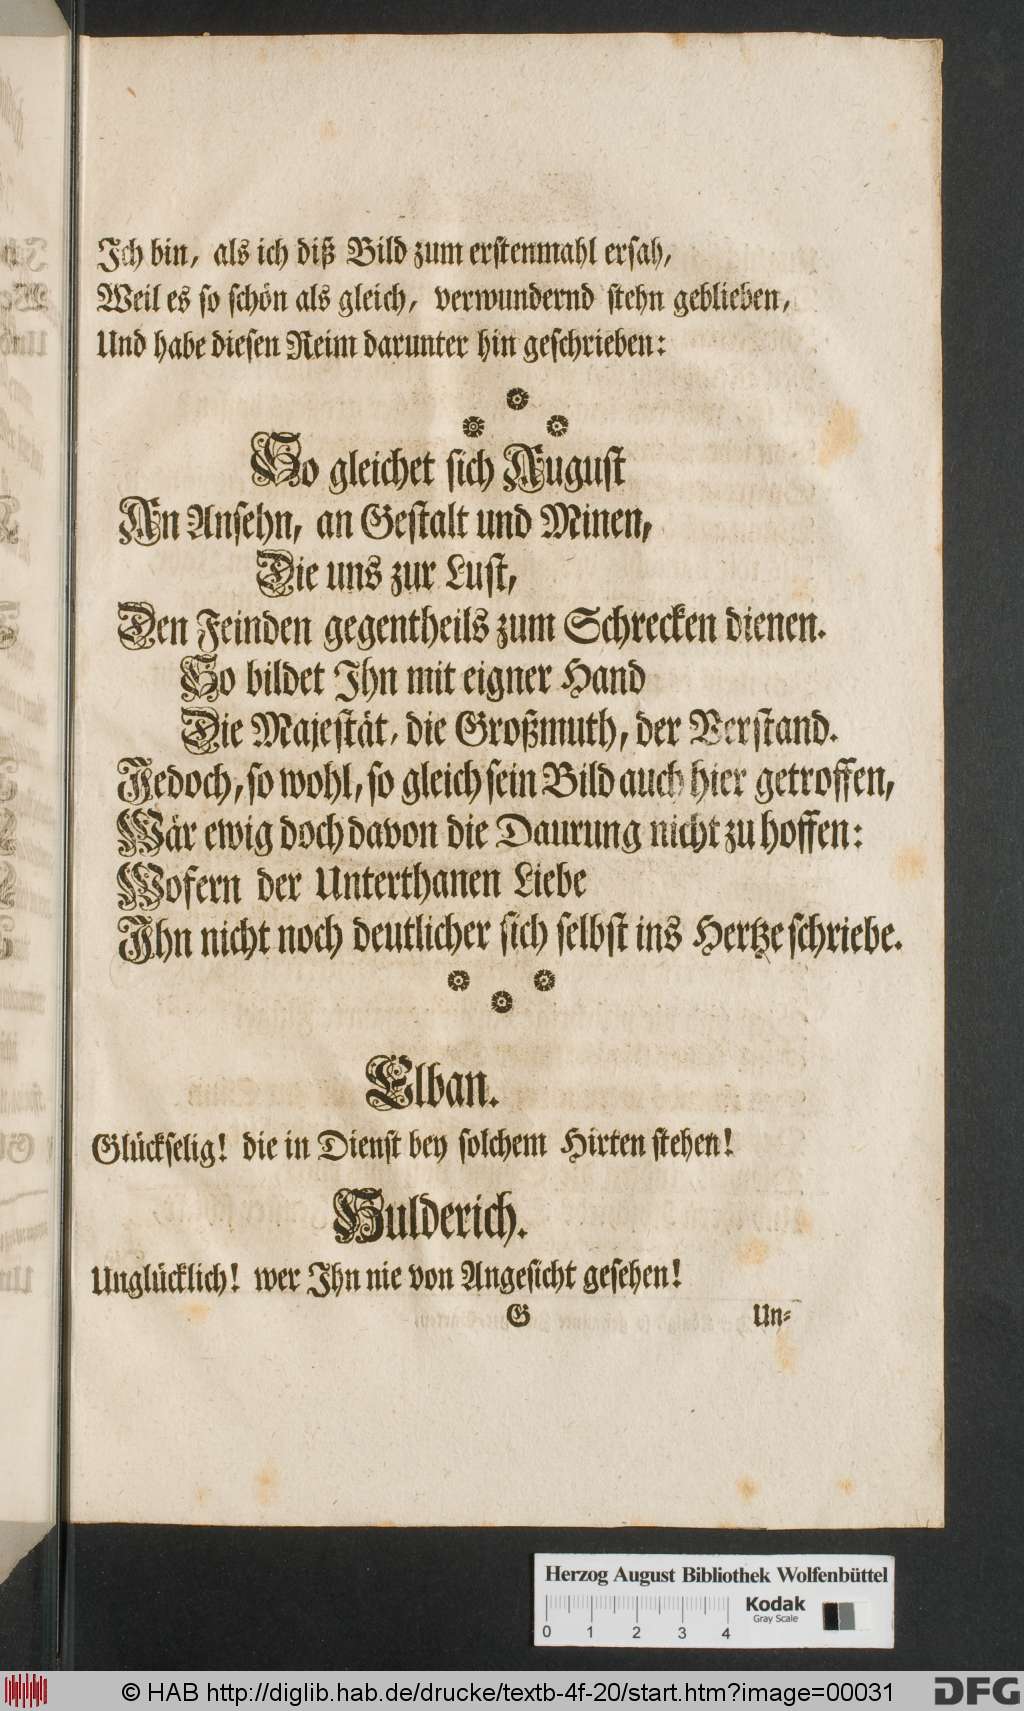 Ich bin, als ich diß Bild zum erstenmahl ersah,
Weil es so schön als gleich, verwundernd stehn geblieben,
Und habe diesen Reim darunter hin geschrieben:
So gleichet sich August
An Ansehn, an Gestalt und Minen,
Die uns zur Lust,
Den Feinden gegentheils zum Schrecken dienen.
So bildet Ihn mit eigner Hand
Die Majestät, die Großmuth, der Verstand.
Jedoch, so wohl, so gleich sein Bild auch hier getroffen,
Wär ewig doch davon die Daurung nicht zu hoffen:
Wofern der Unterthanen Liebe
Ihn nicht noch deutlicher sich selbst ins Hertze schriebe.
Elban.
Glückselig! die in Dienst bey solchem Hirten stehen!
Hulderich.
Unglücklich! wer Ihn nie von Angesicht gesehen!
G Un-
Herzog August Bibliothek Wolfenbüttel
Kodak
Gray Scale
0 1 2 3 4
© HAB http://diglib.hab.de/drucke/textb-4f-20/start.htm?image=00031
DFG